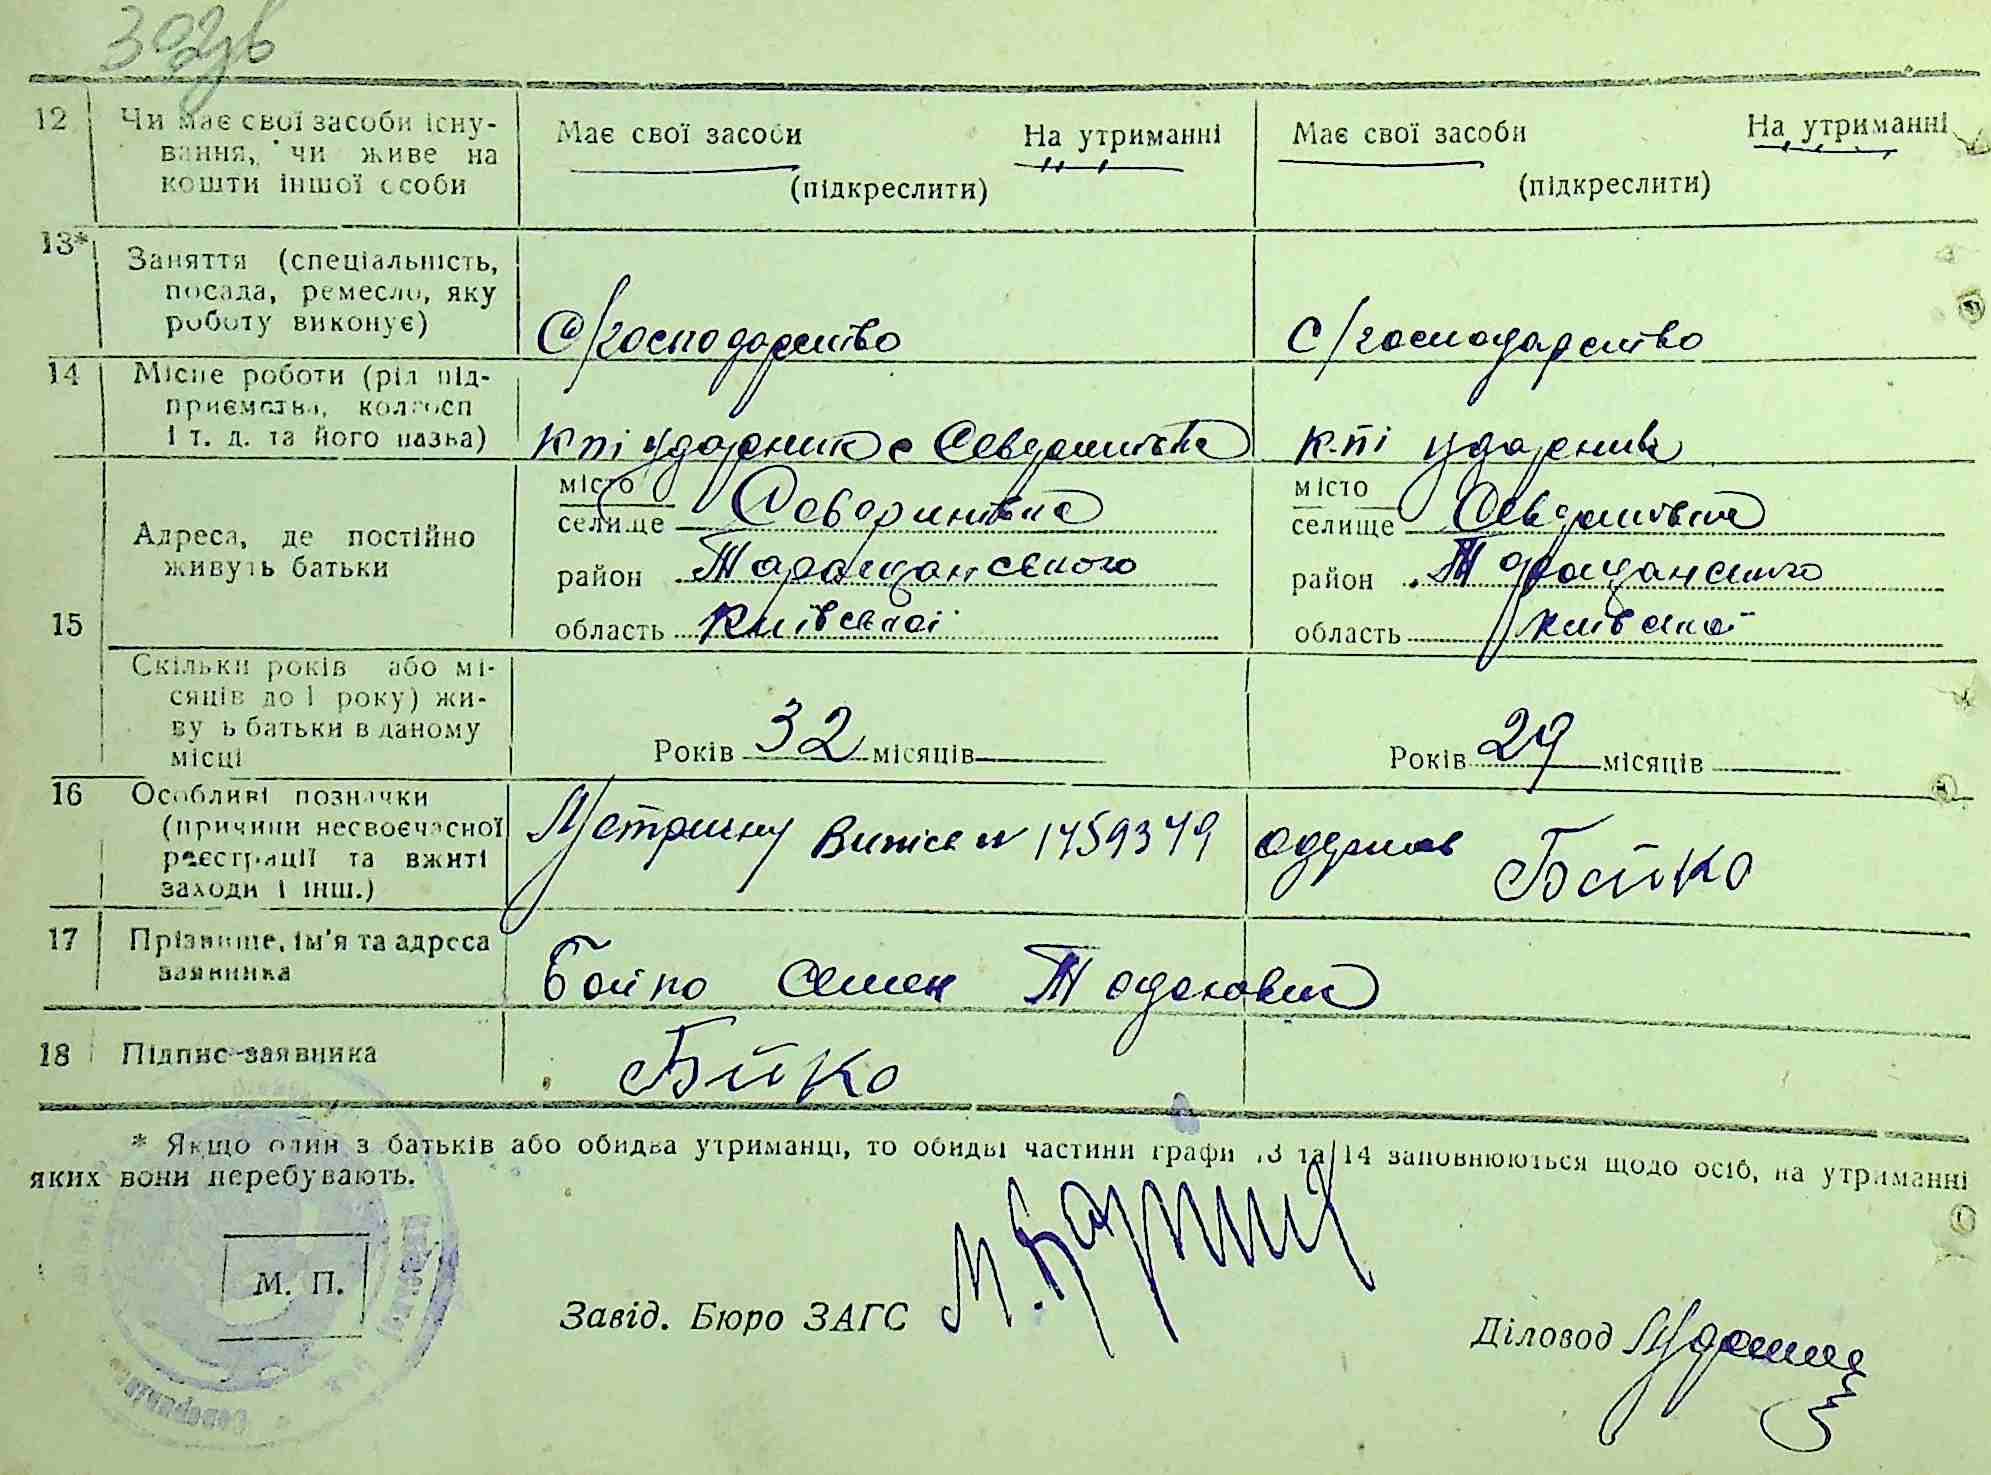 302зв
12 Чи має свої засоби існу-
вання, чи живе на
кошти іншої особи
Має свої засоби На утриманні
(підкреслити)
Має свої засоби На утриманні
(підкреслити)
13* Заняття (спеціальність,
посада, ремесло, яку
роботу виконує)
С/господарство
С/господарство
14 Місце роботи (рід під-
приємства, колгосп
і т. д. та його назва)
к-пі ударник с Северинівка
к-пі ударник
15 Адреса, де постійно
живуть батьки
місто
селище Северинівка
район Таращанського
область Київської
місто
селище Северинівка
район Таращанського
область Київської
Скільки років або мі-
сяців до 1 року) жи-
ву ь батьки в даному
місці
Років 32 місяців
Років 29 місяців
16 Особливі позначки
(причини несвоєчасної
реєстрації та вжиті
заходи і інш.)
Метричну Випис № 1759379 одержав Бойко
17 Прізвище, ім'я та адреса
заявника
Бойко Семен Тодосович
18 Підпис заявника
Бойко
* Якщо один з батьків або обидва утриманці, то обидві частини графи 13 та 14 заповнюються щодо осіб, на утриманні
яких вони перебувають.
М. П.
Завід. Бюро ЗАГС
Діловод